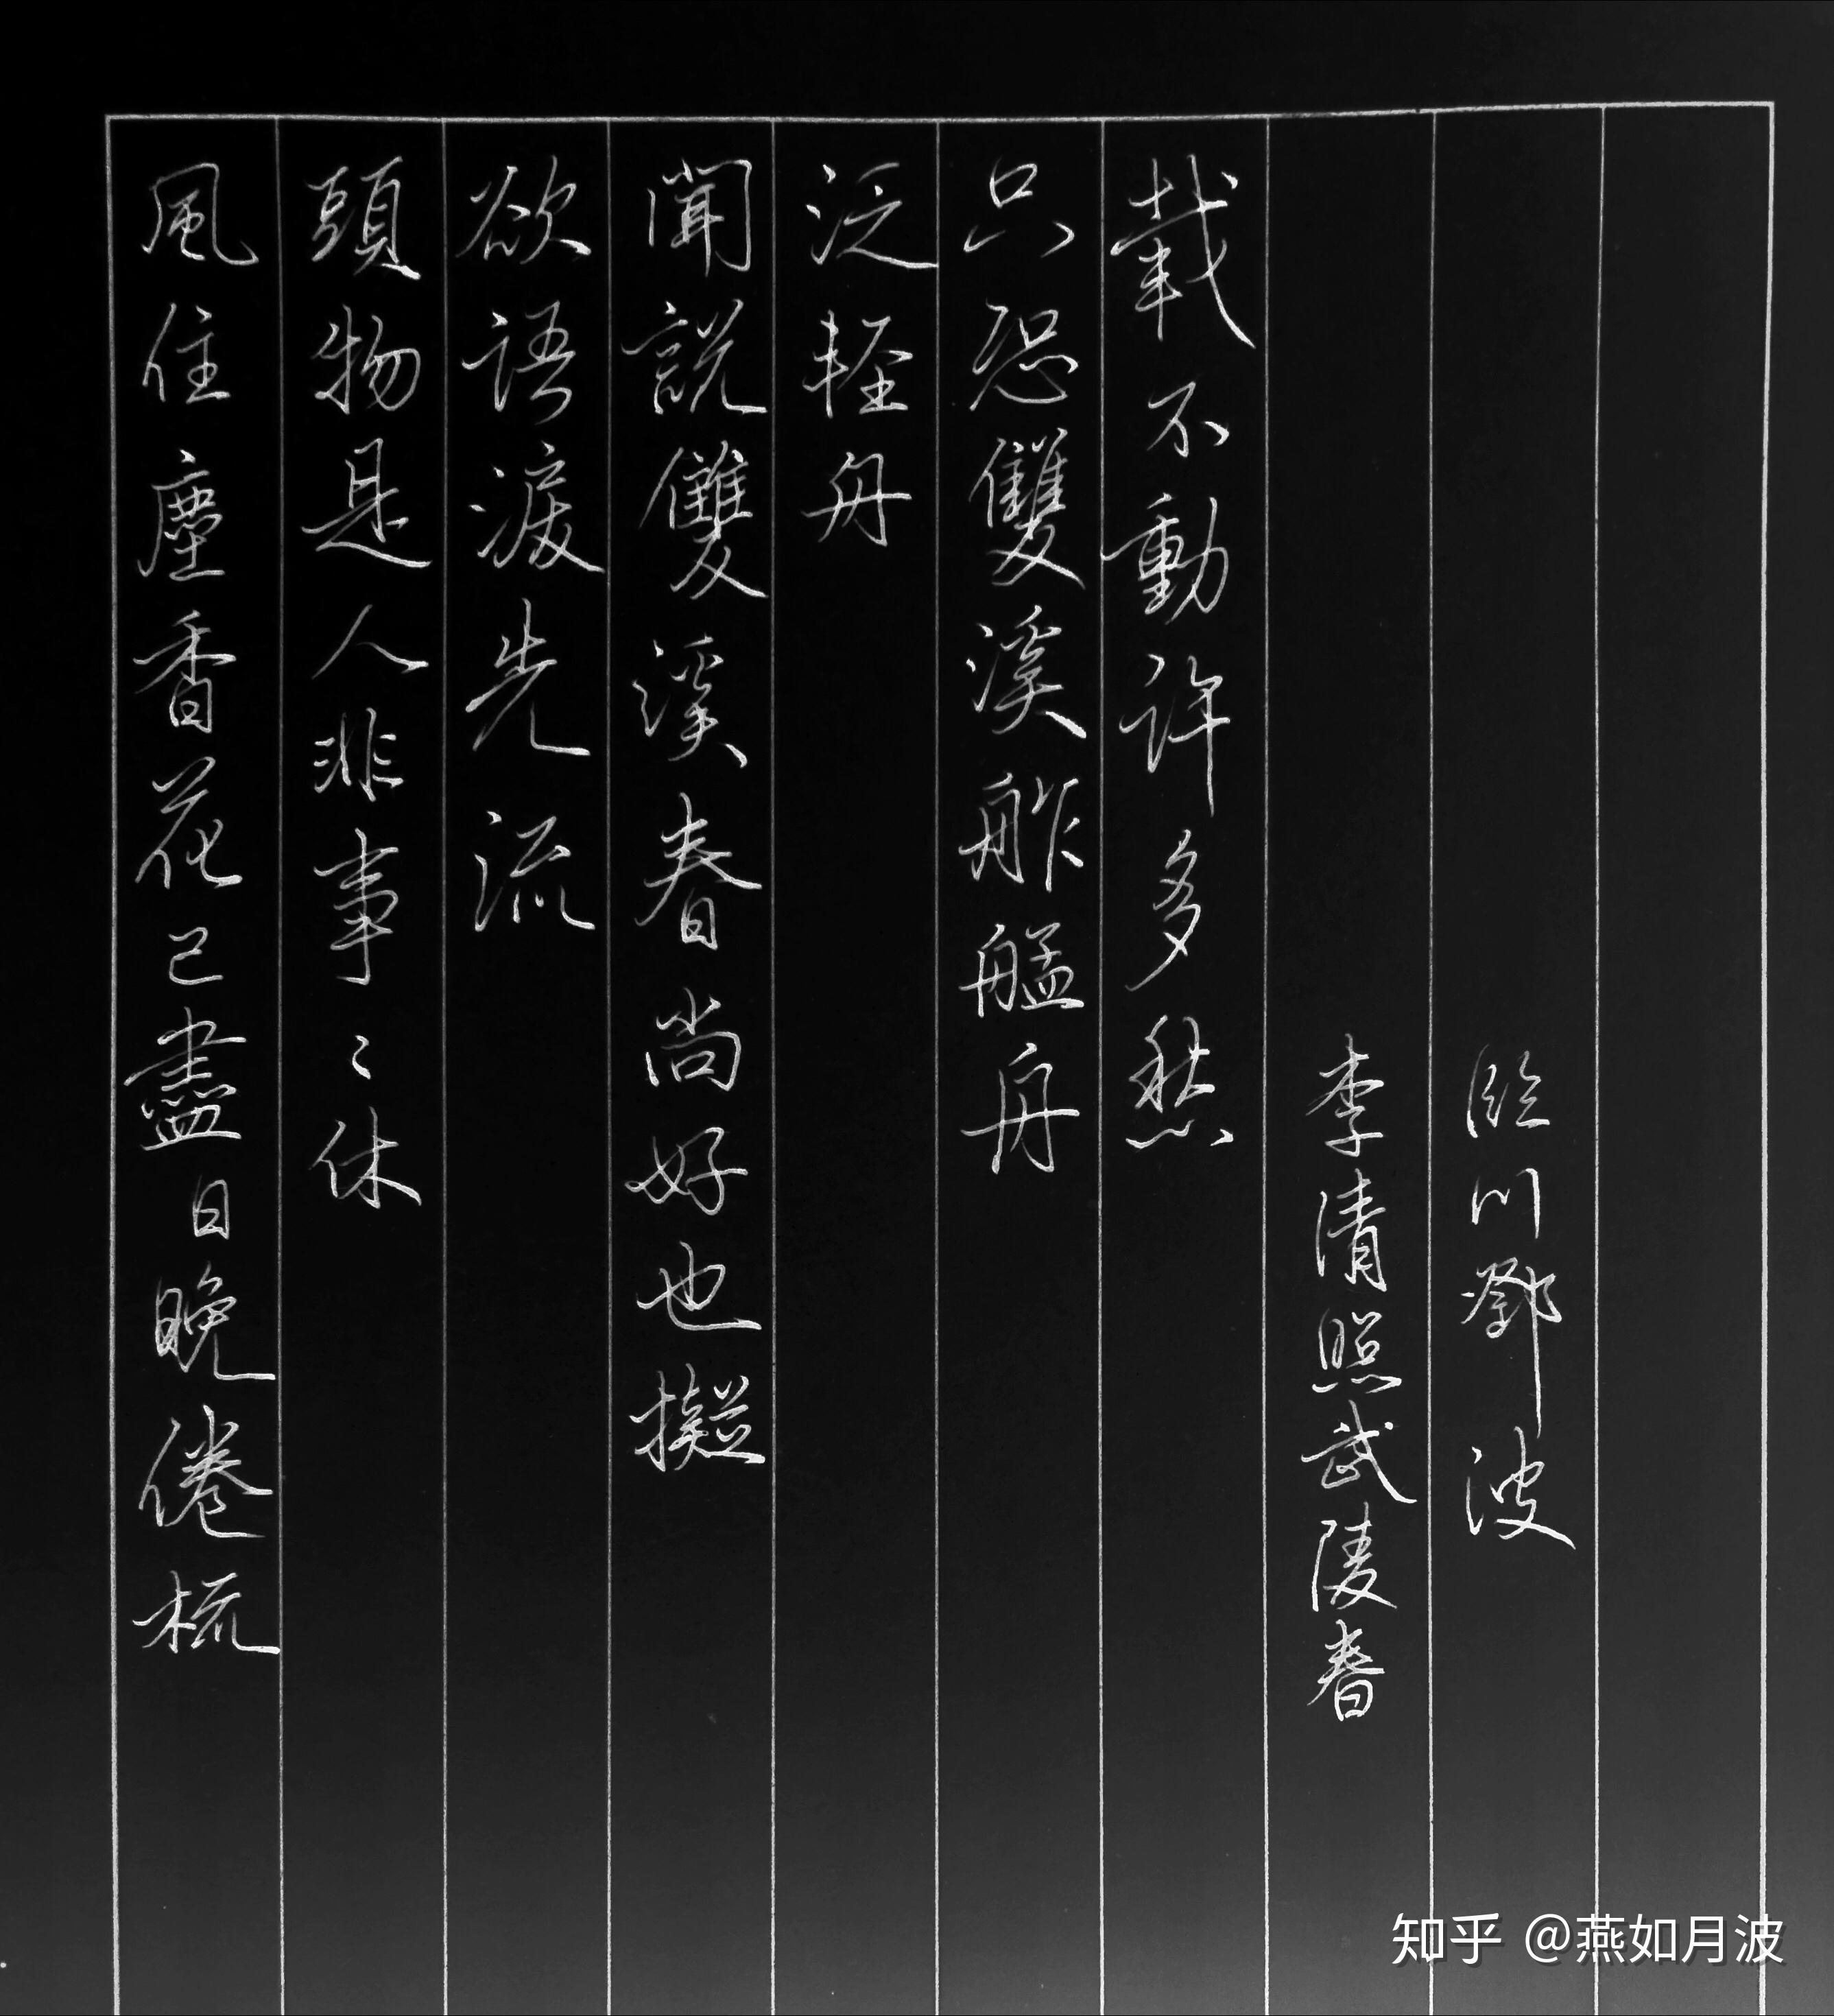 風住塵香花已盡日晚倦梳
頭物是人非事〻休
欲語淚先流
聞說雙溪春尚好也擬
泛輕舟
只恐雙溪舴艋舟
載不動許多愁
李清照武陵春
臨川鄧波
知乎 @燕如月波